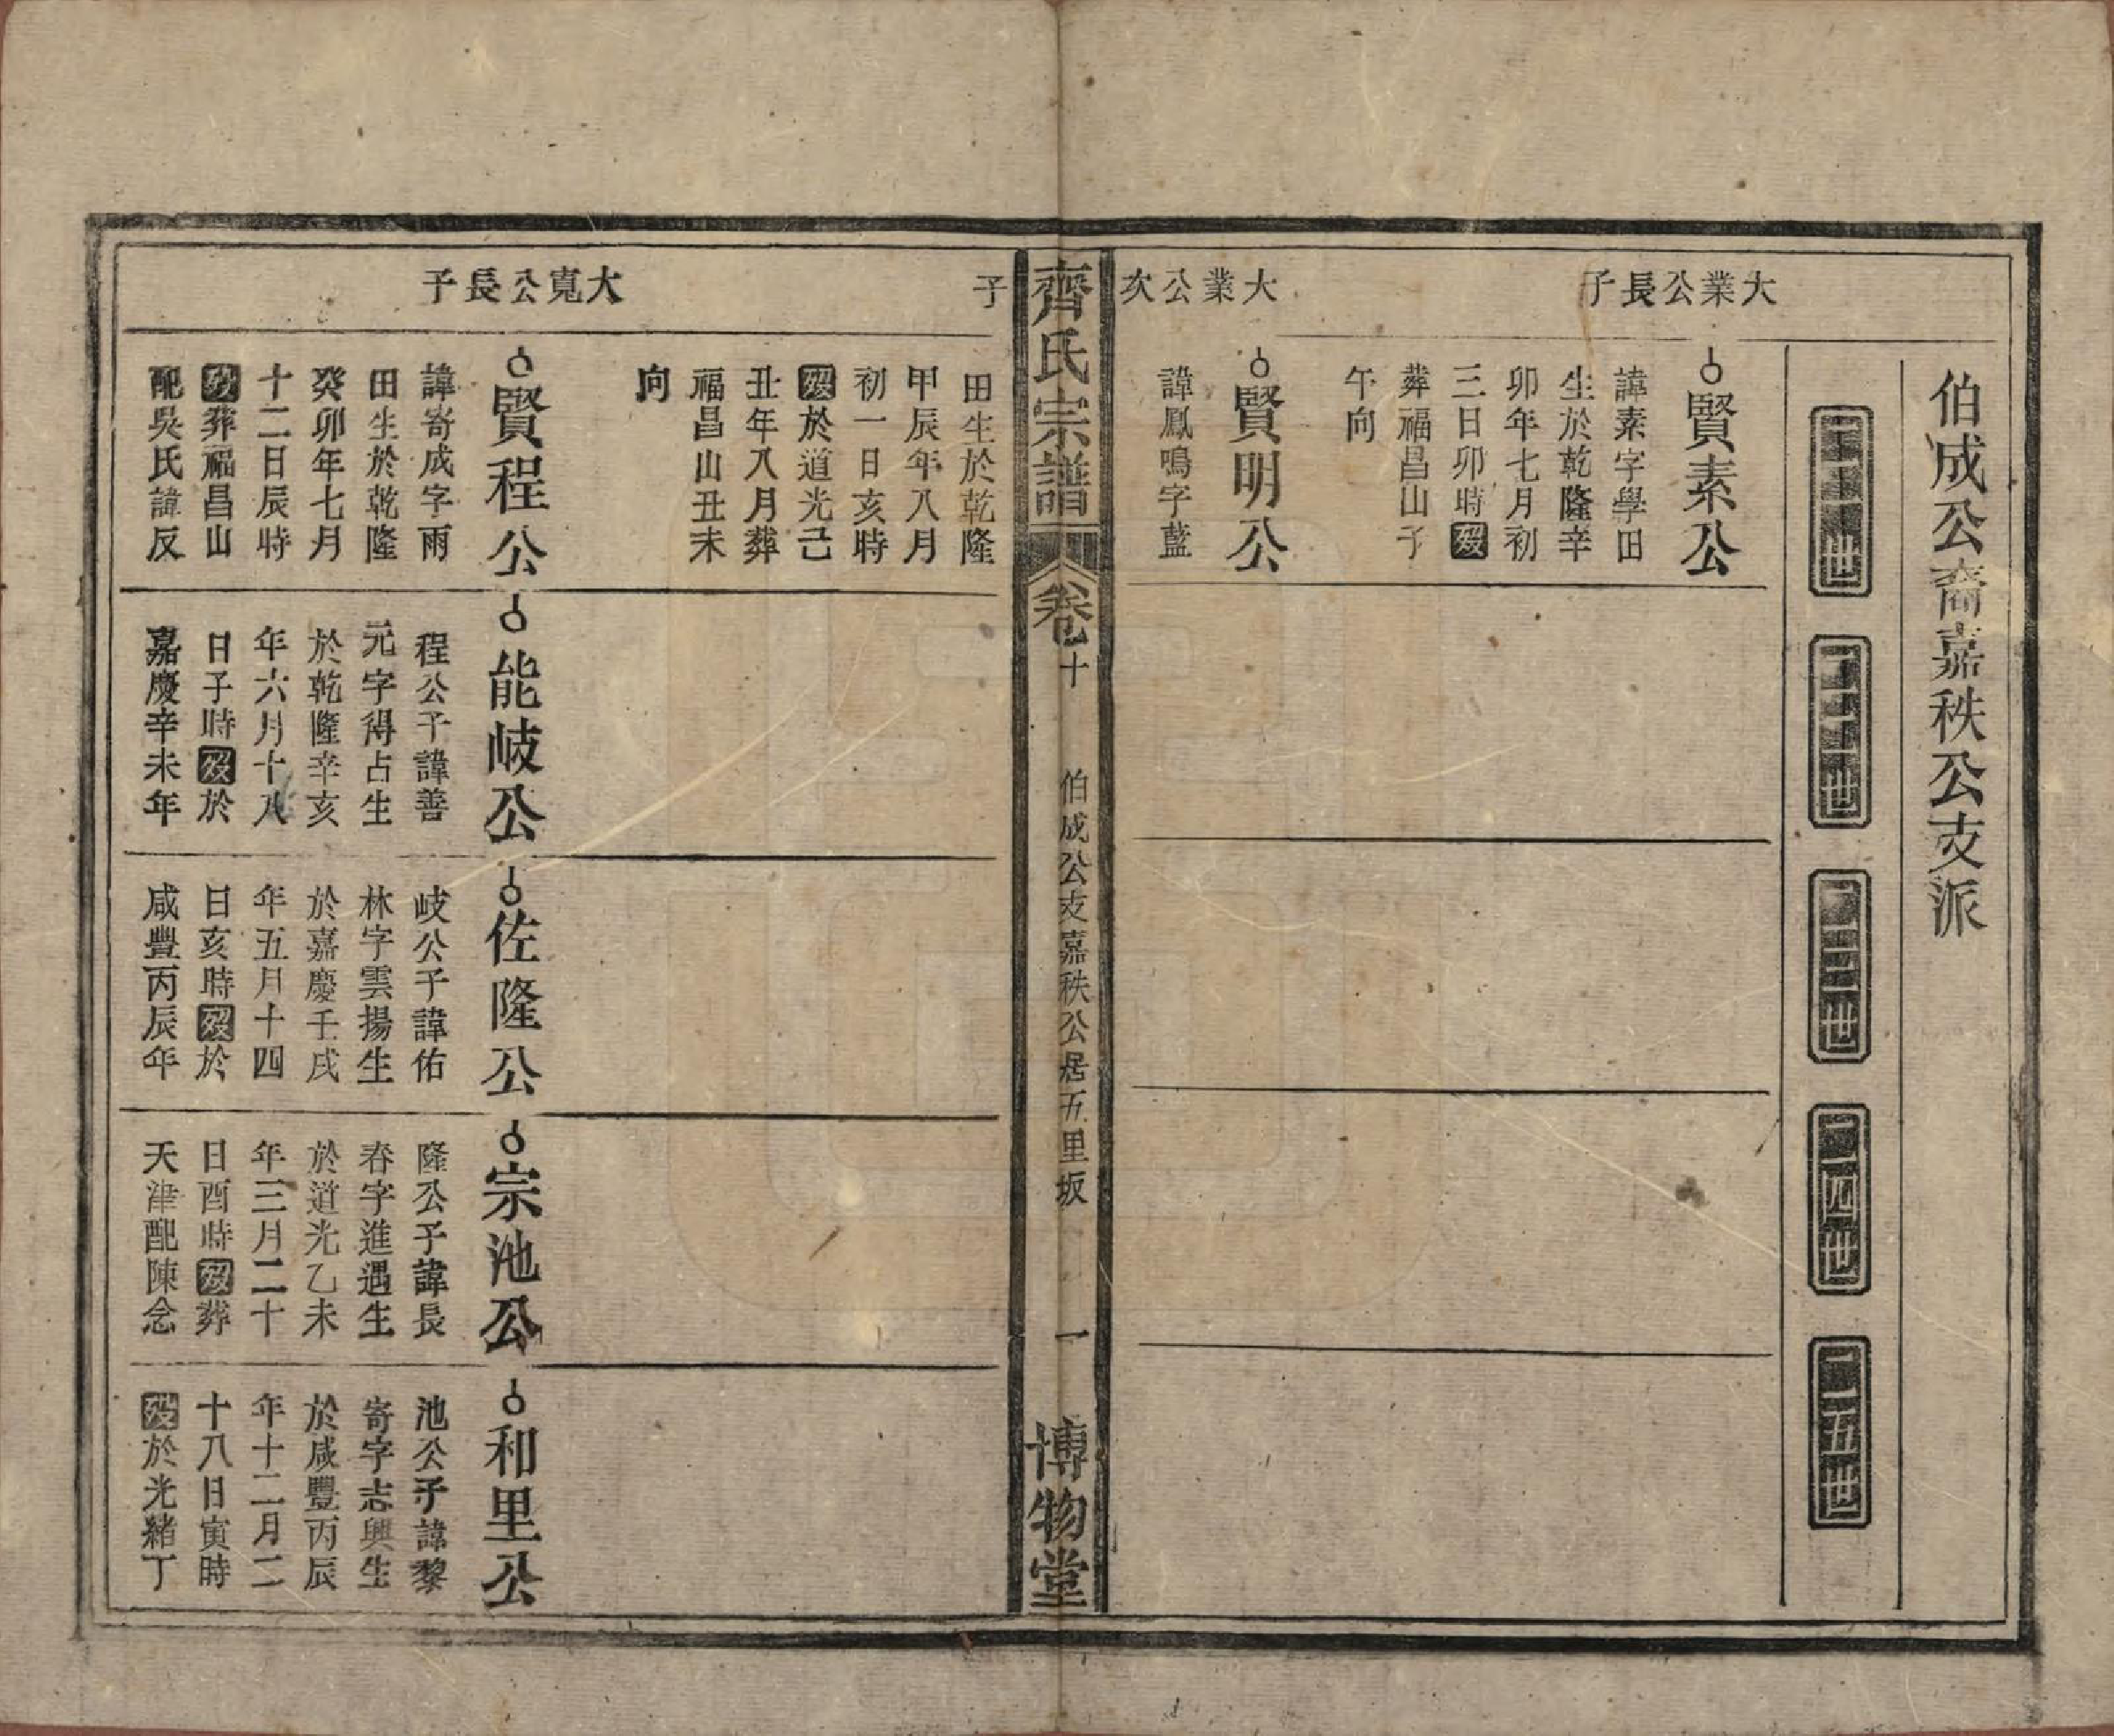 伯成公裔嘉秩公支派
二十一世
二十二世
二十三世
二十四世
二十五世
大業公長子
賢素公
諱素字學田
生於乾隆辛
卯年七月初
三日卯時歿
葬福昌山子
午向
大業公次
賢明公
諱鳳鳴字藍
齊氏宗譜
卷十
伯成公支嘉秩公居五里坂
一
博物堂
子
田生於乾隆
甲辰年八月
初一日亥時
歿於道光己
丑年八月葬
福昌山丑未
向
大寬公長子
賢程公
諱寄成字雨
田生於乾隆
癸卯年七月
十二日辰時
歿葬福昌山
配吳氏諱反
能岐公
程公子諱善
元字得占生
於乾隆辛亥
年六月十八
日子時歿於
嘉慶辛未年
佐隆公
岐公子諱佑
林字雲揚生
於嘉慶壬戌
年五月十四
日亥時歿於
咸豐丙辰年
宗池公
隆公子諱長
春字進遇生
於道光乙未
年三月二十
日酉時歿葬
天津配陳念
和里公
池公子諱黎
寄字志興生
於咸豐丙辰
年十二月二
十八日寅時
歿於光緒丁